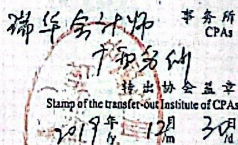 瑞华会计师 事务所
CPAs
广西分所
转出协会盖章
Stamp of the transfer-out Institute of CPAs
2019年 12月 30日
/y /m /d